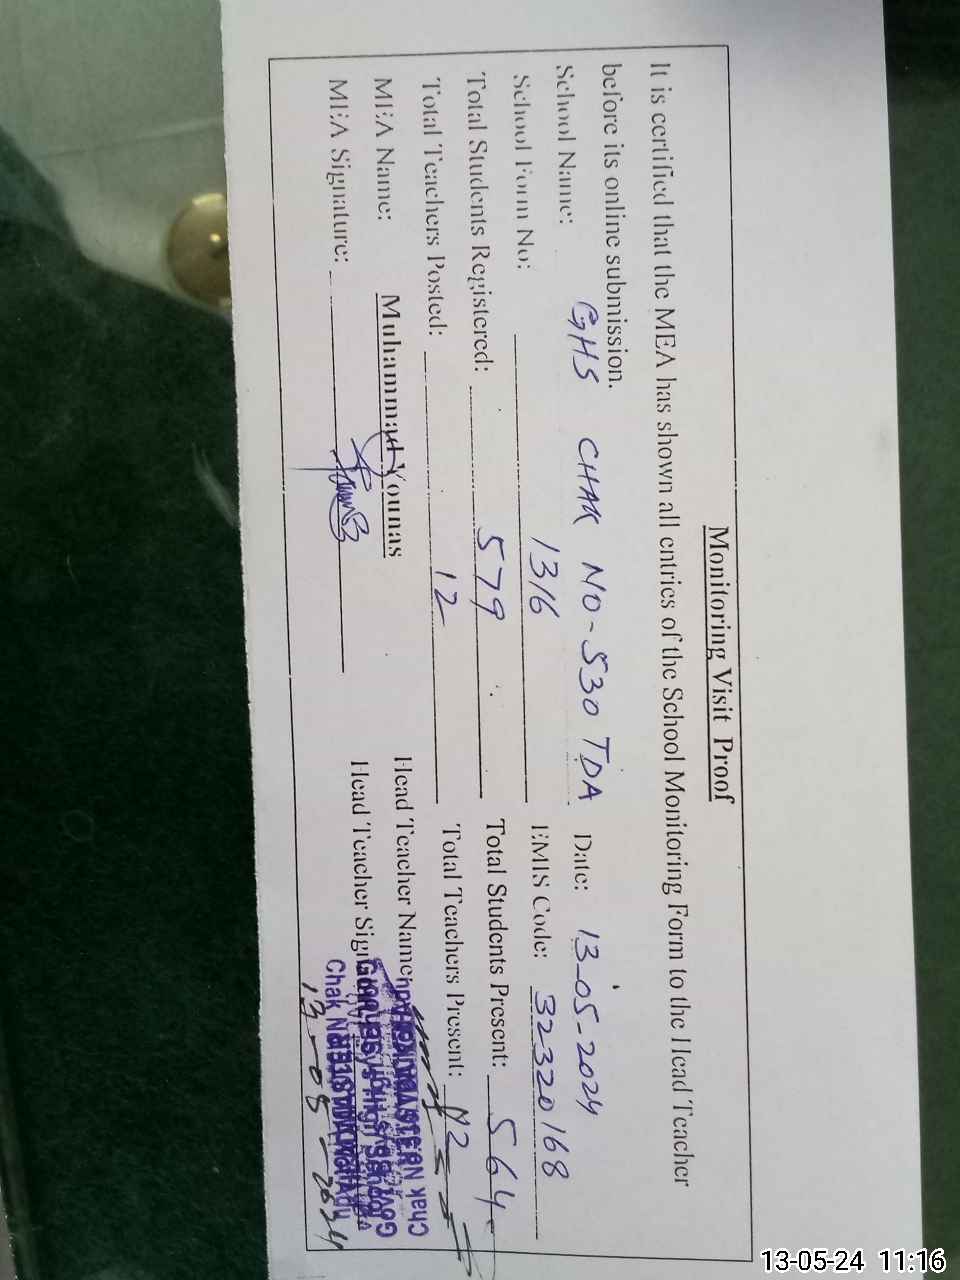 Monitoring Visit Proof
It is certified that the MEA has shown all entries of the School Monitoring Form to the Head Teacher
before its online submission.
School Name: GHS CHAK NO-530 TDA Date: 13-05-2024
School Form No: 1316 EMIS Code: 32320168
Total Students Registered: 579 Total Students Present: 564
Total Teachers Posted: 12 Total Teachers Present: 12
MEA Name: Muhammad Younas Head Teacher Name
MEA Signature: Head Teacher
13-05-2024
13-05-24 11:16